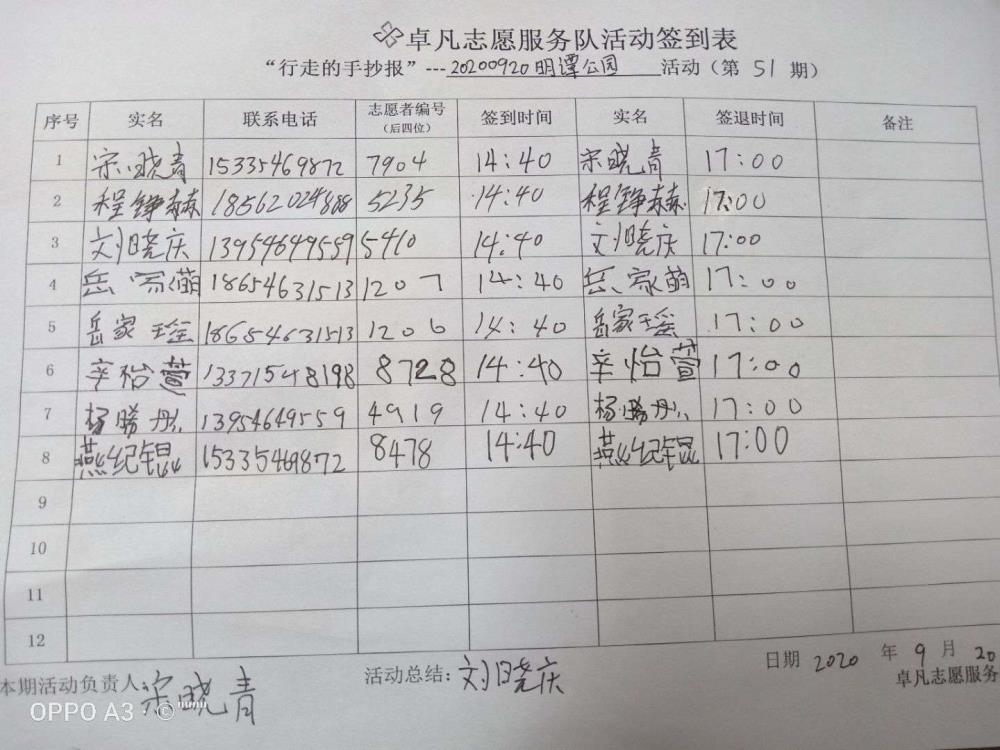 卓凡志愿服务队活动签到表
“行走的手抄报”---20200920明潭公园 活动（第 51 期）
序号 实名 联系电话 志愿者编号（后四位） 签到时间 实名 签退时间 备注
1 宋晓青 15335469872 7904 14:40 宋晓青 17:00
2 程铮赫 18562024888 5235 14:40 程铮赫 17:00
3 刘晓庆 13954649559 5410 14:40 刘晓庆 17:00
4 岳家萌 18654631513 1207 14:40 岳家萌 17:00
5 岳家瑶 18654631513 1206 14:40 岳家瑶 17:00
6 辛怡萱 13371548198 8728 14:40 辛怡萱 17:00
7 杨腾彤 13954649559 4919 14:40 杨腾彤 17:00
8 燕纪锟 15335469872 8478 14:40 燕纪锟 17:00
9
10
11
12
本期活动负责人：宋晓青 活动总结：刘晓庆 日期 2020 年 9 月 20
卓凡志愿服务
OPPO A3 · ©